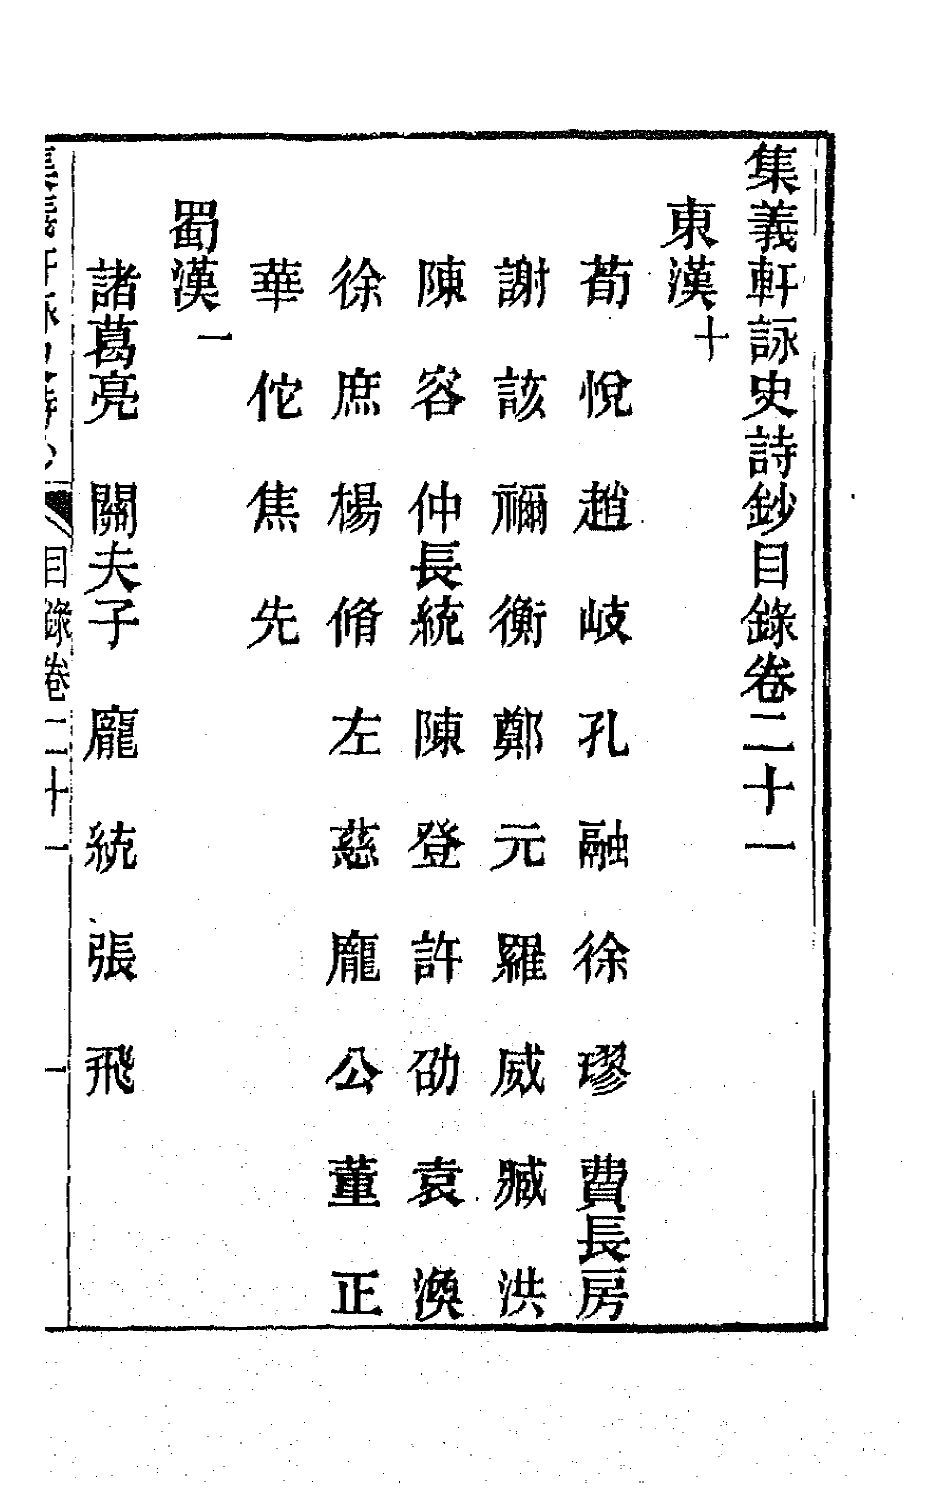 集義軒詠史詩鈔目錄卷二十一
東漢十
荀悅 趙岐 孔融 徐璆 費長房
謝該 禰衡 鄭元 羅威 臧洪
陳容 仲長統 陳登 許劭 袁渙
徐庶 楊脩 左慈 龐公 董正
華佗 焦先
蜀漢一
諸葛亮 關夫子 龐統 張飛
集義軒詠史詩鈔 目錄卷二十一 一